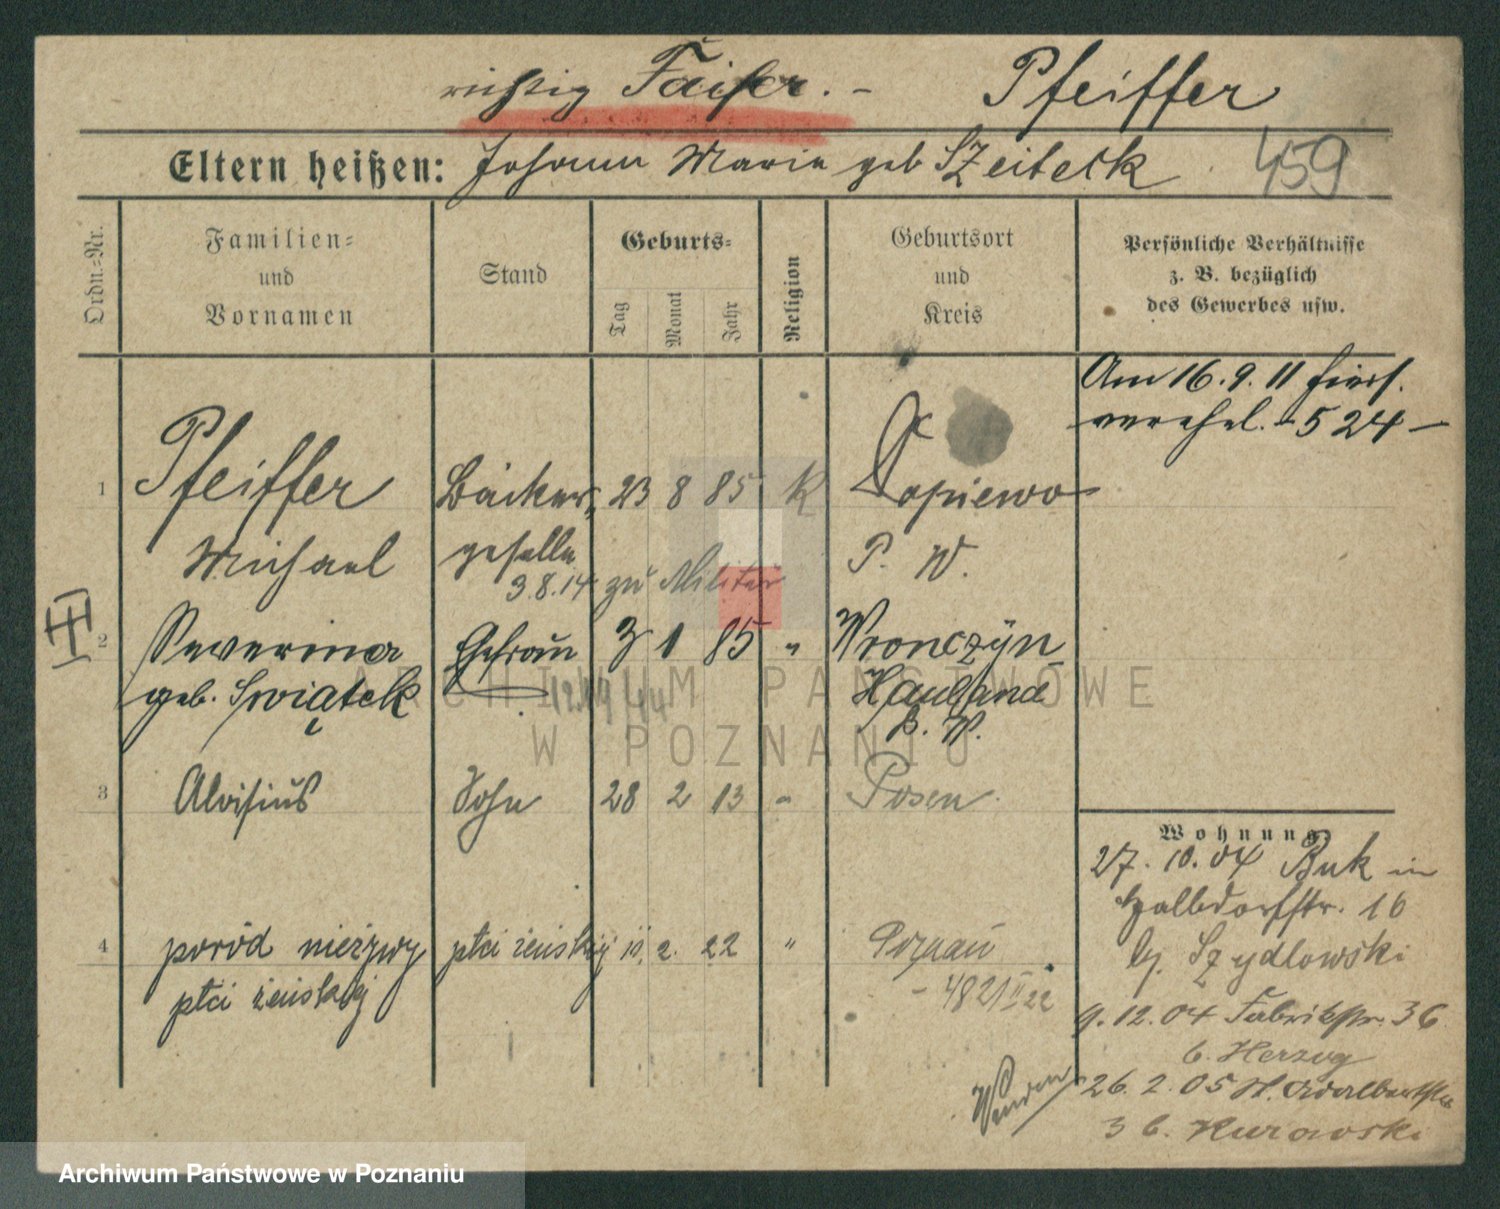 richtig Faiser. - Pfeiffer
Eltern heißen: Johann Maria geb Szeiteck 459
Ordn.=Nr.
Familien=
und
Vornamen
Stand
Geburts=
Tag
Monat
Jahr
Religion
Geburtsort
und
Kreis
Persönliche Verhältnisse
z. B. bezüglich
des Gewerbes usw.
Am 16.9.11 hiers.
verehel. - 524 -
1 Pfeiffer Bäcker= 23 8 85 K Dopiewo
Michael geselle P. W.
3.8.14 zu Militär
III
2 Severina Ehefrau 3 1 85 " Wronczyn
geb. Swiątek Hauland
P. W.
3 Aloisius Sohn 28 2 13 " Posen
4 poród nieżywy płci żeńskiej 2. 22 " Poznań
płci żeńskiej - 482/II 22
Wohnung
27. 10. 04 Buk in
16
b. Szydlowski
9. 12. 04 Fabrikstr. 36
b. Herzog
Wenden
26. 2. 05 St. Adalbertstr.
3 b. Kurowski
ARCHIWUM PAŃSTWOWE
W POZNANIU
Archiwum Państwowe w Poznaniu